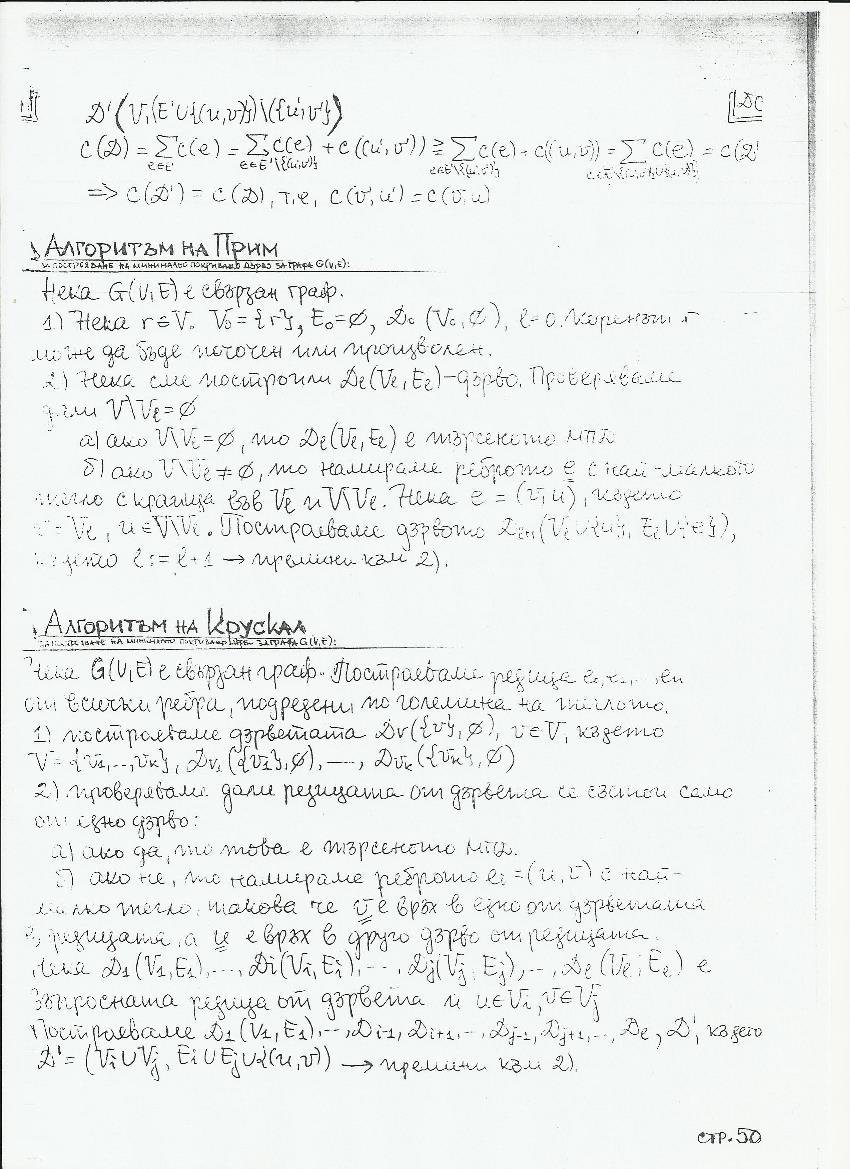 ДС
D'(V,(E'∪{(u,v)})\({u',v'})
c(D) = ∑c(e) = ∑c(e) + c((u',v')) ≥ ∑c(e) + c((u,v)) = ∑c(e) = c(D'
e∈E' e∈E'\{(u',v')} e∈E'\{(u',v')}
=> c(D') = c(D), т.е, c(v',u') = c(v,u)
Алгоритъм на Прим
построяване на минимално покриващо дърво за графа G(V,E):
Нека G(V,E) е свързан граф.
1) Нека r∈V. V₀={r}, E₀=∅, D₀(V₀,∅), l=0. Коренът r
може да бъде посочен или произволен.
2) Нека сме построили Dₗ(Vₗ,Eₗ)-дърво. Проверяваме
дали V\Vₗ=∅
а) ако V\Vₗ=∅, то Dₗ(Vₗ,Eₗ) е търсеното МПД
б) ако V\Vₗ≠∅, то намираме реброто e с най-малкото
тегло с краища във Vₗ и V\Vₗ. Нека e = (v,u), където
v∈Vₗ, u∈V\Vₗ. Построяваме дървото Dₗ₊₁(Vₗ∪{u}, Eₗ∪{e}),
където l:=l+1 → премини към 2).
Алгоритъм на Крускал
на минимално покриващо за графа G(V,E):
Нека G(V,E) е свързан граф. Построяваме редица e₁,e₂,...,eₙ
от всички ребра, подредени по големина на теглото.
1) построяваме дърветата Dv({v},∅), v∈V, където
V={v₁,..,vₖ}, Dv₁({v₁},∅),---, Dvₖ({vₖ},∅)
2) проверяваме дали редицата от дървета се състои само
от едно дърво:
а) ако да, то това е търсеното МПД.
б) ако не, то намираме реброто eₗ=(u,v) с най-
малко тегло, такова че v е връх в едно от дърветата
в редицата, а u е връх в друго дърво от редицата.
Нека D₁(V₁,E₁),..., Dᵢ(Vᵢ,Eᵢ),..., Dⱼ(Vⱼ,Eⱼ),.., Dₗ(Vₗ,Eₗ) е
въпросната редица от дървета и u∈Vᵢ, v∈Vⱼ
Построяваме D₁(V₁,E₁),.., Dᵢ₋₁, Dᵢ₊₁,.., Dⱼ₋₁, Dⱼ₊₁,.., Dₗ, D', където
D'=(Vᵢ∪Vⱼ, Eᵢ∪Eⱼ∪{(u,v)) → премини към 2).
стр.50